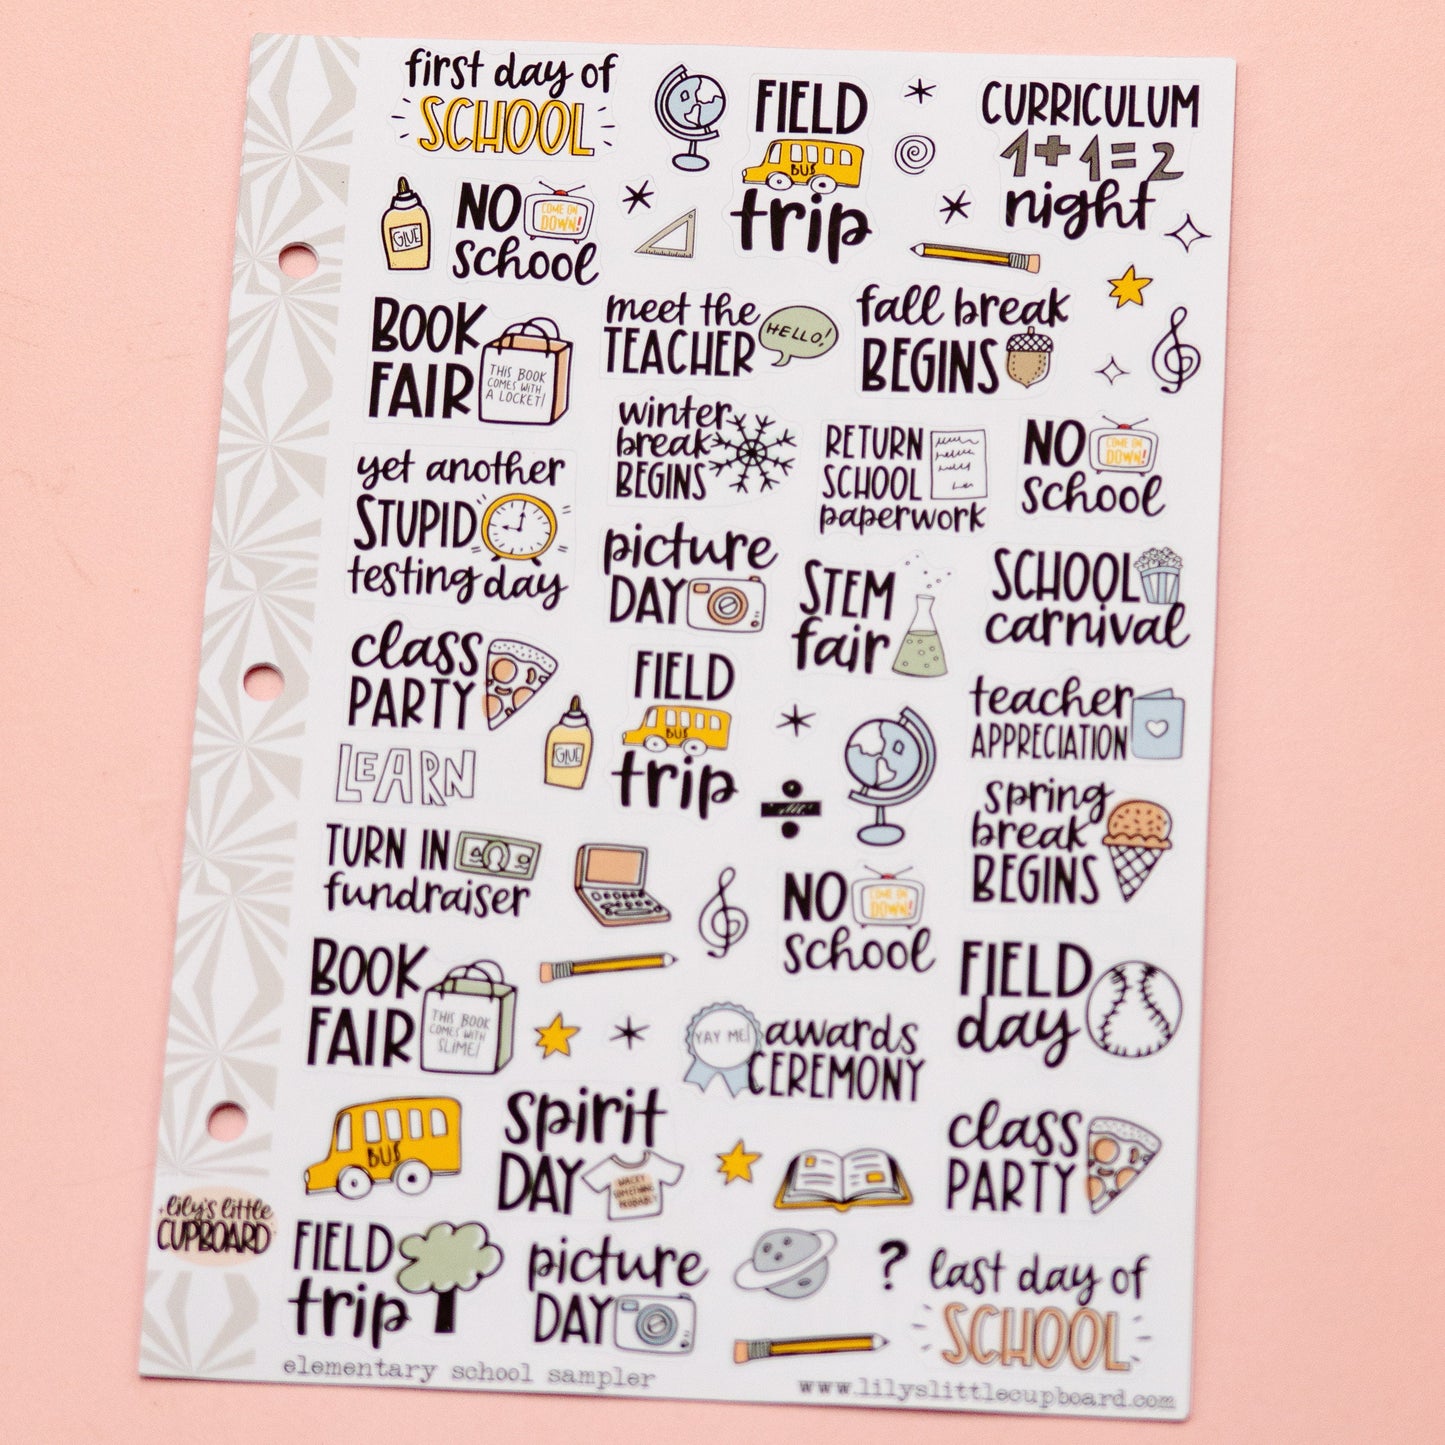 first day of
SCHOOL
FIELD
BUS
trip
CURRICULUM
1+1=2
night
GLUE
NO
COME ON
DOWN!
school
BOOK
FAIR
THIS BOOK
COMES WITH
A LOCKET!
meet the
TEACHER
HELLO!
fall break
BEGINS
winter
break
BEGINS
RETURN
SCHOOL
paperwork
NO
COME ON
DOWN!
school
yet another
STUPID
testing day
picture
DAY
STEM
fair
SCHOOL
carnival
class
PARTY
FIELD
BUS
trip
GLUE
teacher
APPRECIATION
LEARN
spring
break
BEGINS
TURN IN
fundraiser
NO
COME ON
DOWN!
school
BOOK
FAIR
THIS BOOK
COMES WITH
SLIME!
FIELD
day
YAY ME!
awards
CEREMONY
BUS
spirit
DAY
WACKY
SOMETHING
PROBABLY
class
PARTY
lily's little
CUPBOARD
FIELD
trip
picture
DAY
?
last day of
SCHOOL
elementary school sampler
www.lilyslittlecupboard.com